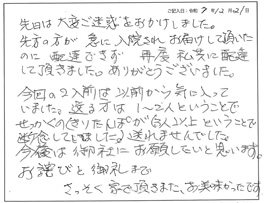 ご記入日:令和7年12月21日
先日は大変ご迷惑をおかけしました。
先方の方が急に入院されお届けして頂いた
のに配達できず 再度私共に配達
して頂きました。ありがとうございました。
今回の2人前は以前から気に入って
いました。送る方は1〜2人ということで
せっかくのきりたんぽが
ということで
送れませんでした。
今後は御社にお願したいと思います。
お詫びと御礼まで。
さっそく家で頂きました、お美味かったです